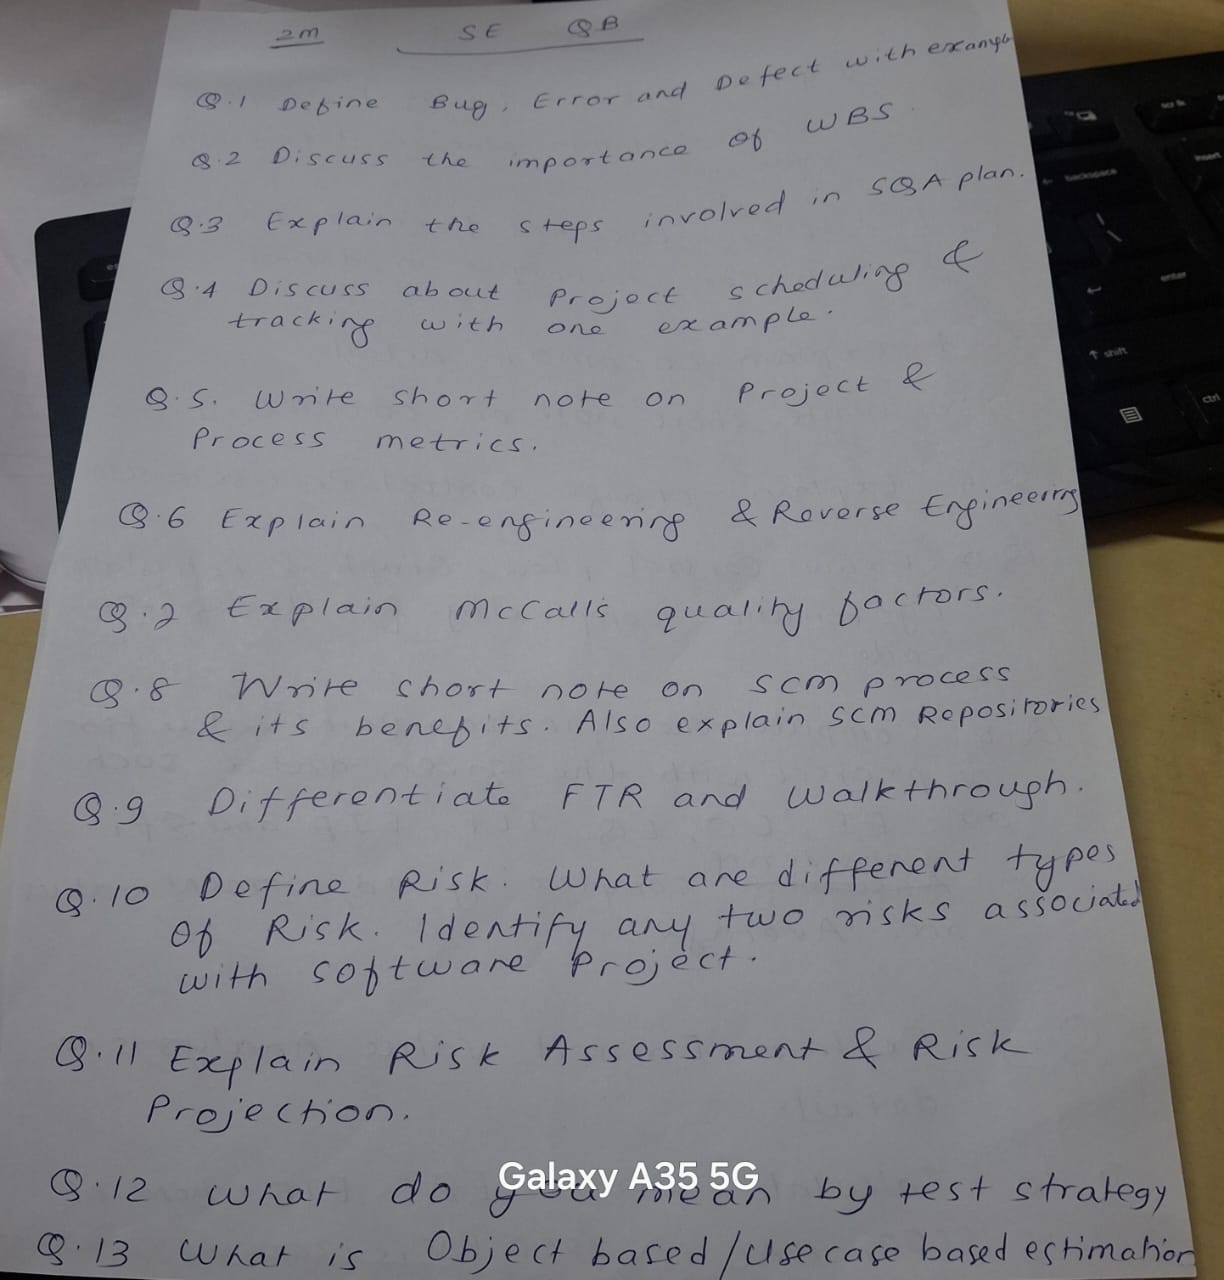 2m SE QB
Q.1 Define Bug, Error and Defect with example
Q.2 Discuss the importance of WBS
Q.3 Explain the steps involved in SQA plan.
Q.4 Discuss about Project scheduling &
tracking with one example.
Q.5. Write short note on Project &
Process metrics.
Q.6 Explain Re-engineering & Reverse Engineering
Q.7 Explain McCalls quality factors.
Q.8 Write short note on SCM process
& its benefits. Also explain SCM Repositories
Q.9 Differentiate FTR and Walkthrough.
Q.10 Define Risk. What are different types
of Risk. Identify any two risks associated
with software Project.
Q.11 Explain Risk Assessment & Risk
Projection.
Q.12 What do you mean by test strategy
Galaxy A35 5G
Q.13 What is Object based/Use case based estimation
backspace
enter
↑ shift
ctrl
insert